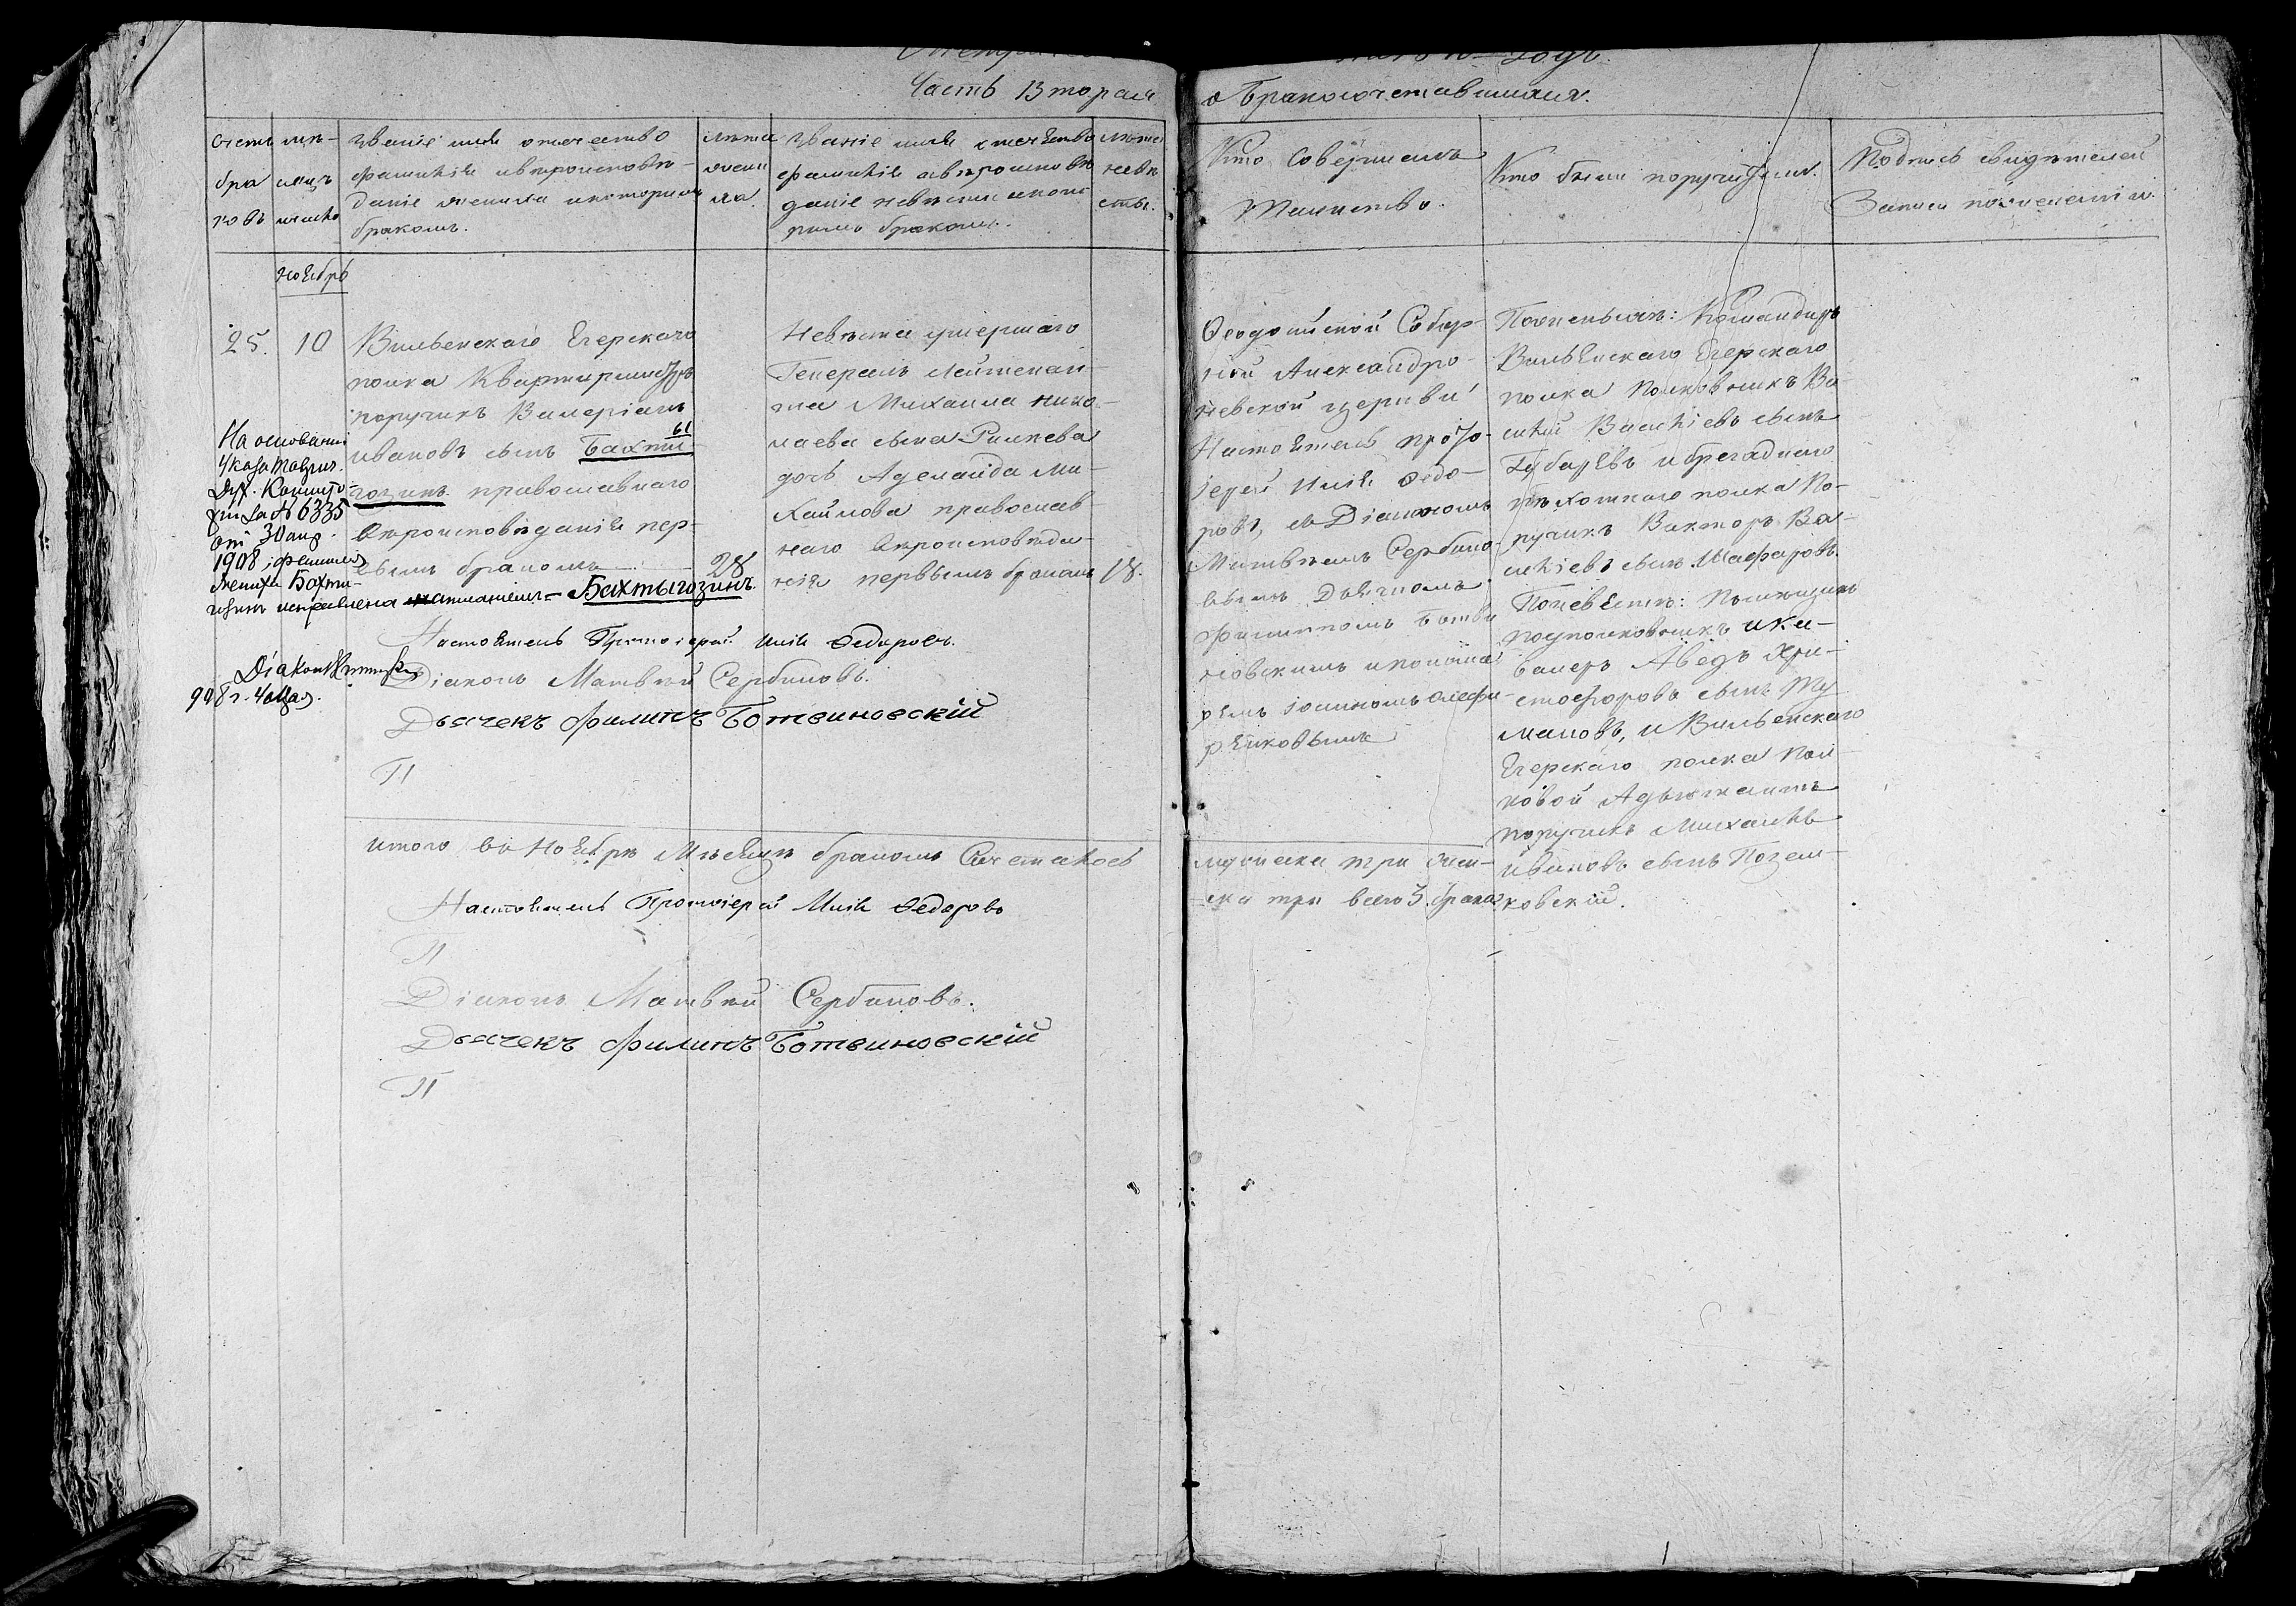 Часть Вторая
о бракосочетавшихся.
Счетъ
бра
ковъ
мѣ-
сяцъ
и число
Званіе имя отчество
фамилія и вѣроисповѣ-
даніе жениха и которымъ
бракомъ.
лѣта
жени
ха
Званіе имя отчество
фамилія и вѣроисповѣ
даніе невѣсты и кото
рымъ бракомъ.
лѣта
невѣ
сты.
Кто Совершалъ
Таинство.
Кто были поручители.
Подпись свидѣтелей
Записи по желанію.
Ноябрь
25. 10
Виленскаго Егерскаго
полка Квартирмистръ
поручикъ Валеріанъ
ы
Ивановъ сынъ Бахти-
гозинъ православнаго
вѣроисповѣданія пер-
вымъ бракомъ 28
Невѣста умершаго
Генералъ Лейтенан-
та Михаила Нико-
лаева сына Рылѣева
дочь Аделаида Ми-
хайлова православ-
наго вѣроисповѣда-
нія первымъ бракомъ 18.
Ѳеодосійской Собор-
ной Александро-
невской церкви
Настоятель прото-
іерей Илія Ѳедо-
ровъ, съ Діакономъ
Матвѣемъ Сербино-
вымъ Дьячкомъ
Филиппомъ Ботви
новскимъ и понома
ремъ
По женихѣ: Командиръ
Виленскаго Егерскаго
полка Полковникъ Ва-
силій Васильевъ сынъ
Губаревъ и бригаднаго
пѣхотнаго полка По-
ручикъ Викторъ Ва-
сильевъ сынъ Шафаровъ.
По невѣстѣ: Помѣщикъ
подполковникъ и ка-
валеръ Аведъ Хри-
стофоровъ сынъ Ту
мановъ, и Виленскаго
Егерскаго полка Пол-
ковой Адъютантъ
поручикъ Михаилъ
Ивановъ сынъ Позем-
ковскій.
На основаніи
Указа Таврич.
Дух. Консисто-
ріи за № 6335
отъ 30 апр.
1908, фамилія
жениха Бахти-
гозинъ исправлена написаніемъ - Бахтыгозинъ.
Діаконъ
908 г. 4 мая.
Настоятель Протоіерей Илія Ѳедоровъ.
Діаконъ Матвѣй Сербиновъ.
Дьячекъ Филиппъ Ботвиновскій
П
Итого въ Ноябрѣ Мѣсяцѣ бракомъ Сочеталось
мужеска три жен-
ска три всего 3. брака
Настоятель Протоіерей Илія Ѳедоровъ
П
Діаконъ Матвѣй Сербиновъ.
Дьячекъ Филиппъ Ботвиновскій
П